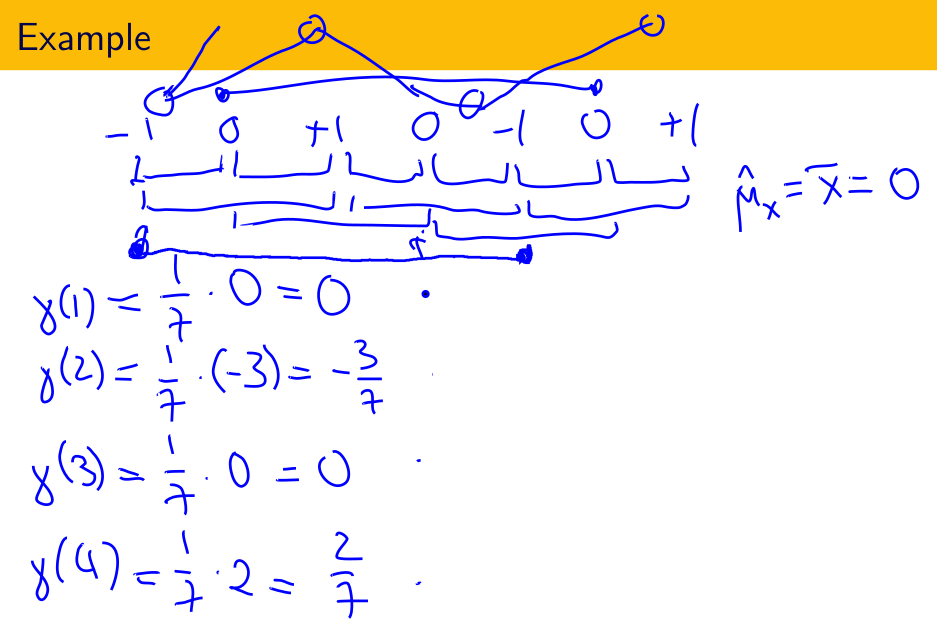 Example
-1 0 +1 0 -1 0 +1
μ̂ₓ = x̄ = 0
γ(1) = 1/7 · 0 = 0
γ(2) = 1/7 · (-3) = -3/7
γ(3) = 1/7 · 0 = 0
γ(4) = 1/7 · 2 = 2/7